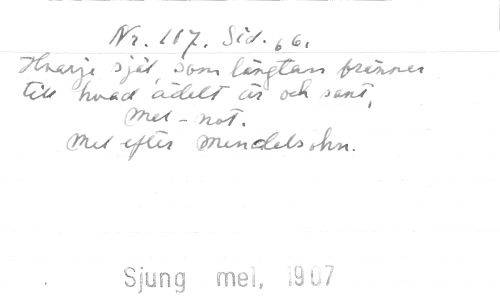 Nr. 117. Sid. 66.
Hvarje själ, som längtan bränner
till hvad ädelt är och sant,
Mel - not.
Mel efter Mendelsohn.
Sjung mel, 1907